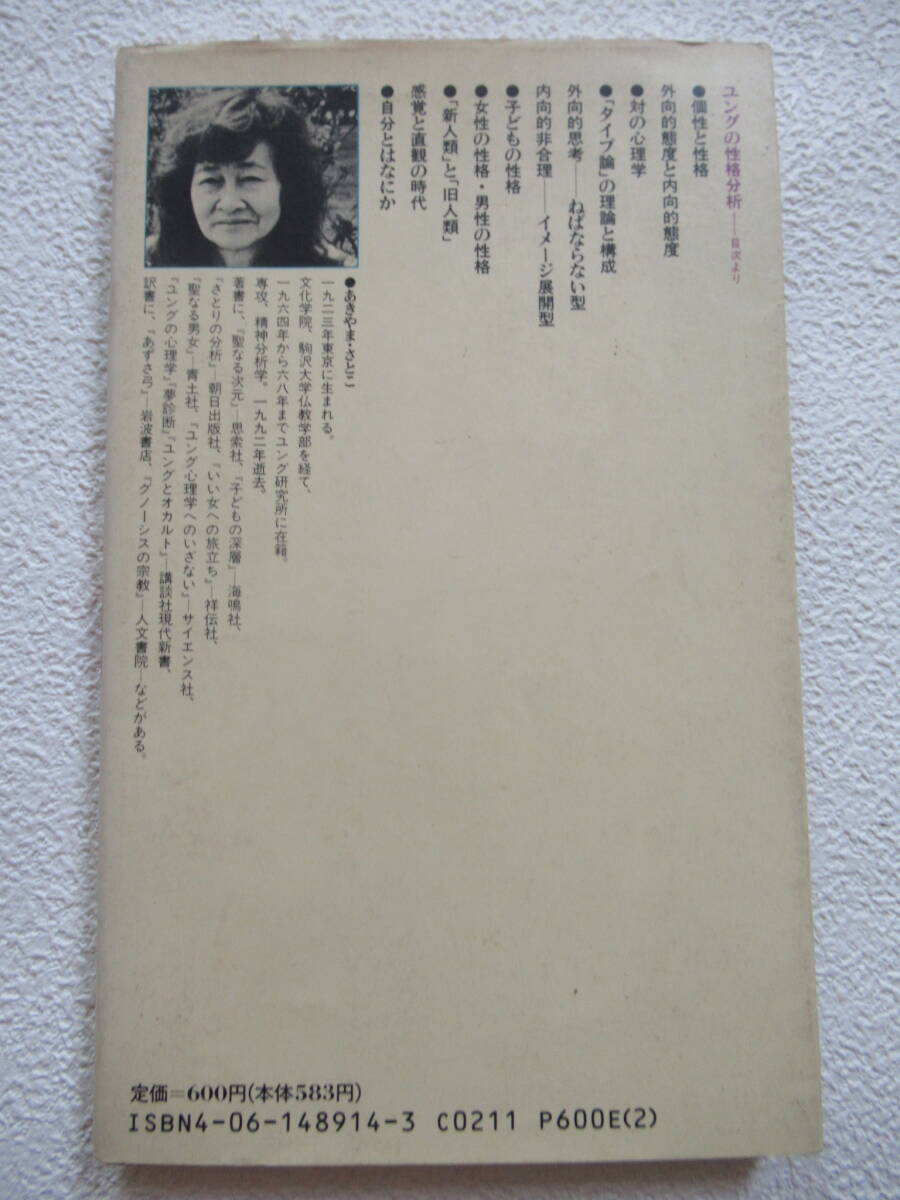 ユングの性格分析――目次より
●個性と性格
外向的態度と内向的態度
●対の心理学
●「タイプ論」の理論と構成
外向的思考――ねばならない型
内向的非合理――イメージ展開型
●子どもの性格
●女性の性格・男性の性格
●「新人類」と「旧人類」
感覚と直観の時代
●自分とはなにか
●あきやま・さとこ
一九二三年東京に生まれる。
文化学院、駒沢大学仏教学部を経て、
一九六四年から六八年までユング研究所に在籍。
専攻、精神分析学。一九九二年逝去。
著書に、『聖なる次元』―思索社、『子どもの深層』―海鳴社、
『さとりの分析』―朝日出版社、『いい女への旅立ち』―祥伝社、
『聖なる男女』―青土社、『ユング心理学へのいざない』―サイエンス社、
『ユングの心理学』『夢診断』『ユングとオカルト』―講談社現代新書、
訳書に、『あずさ弓』―岩波書店、『グノーシスの宗教』―人文書院―などがある。
定価=600円(本体583円)
ISBN4-06-148914-3 C0211 P600E(2)